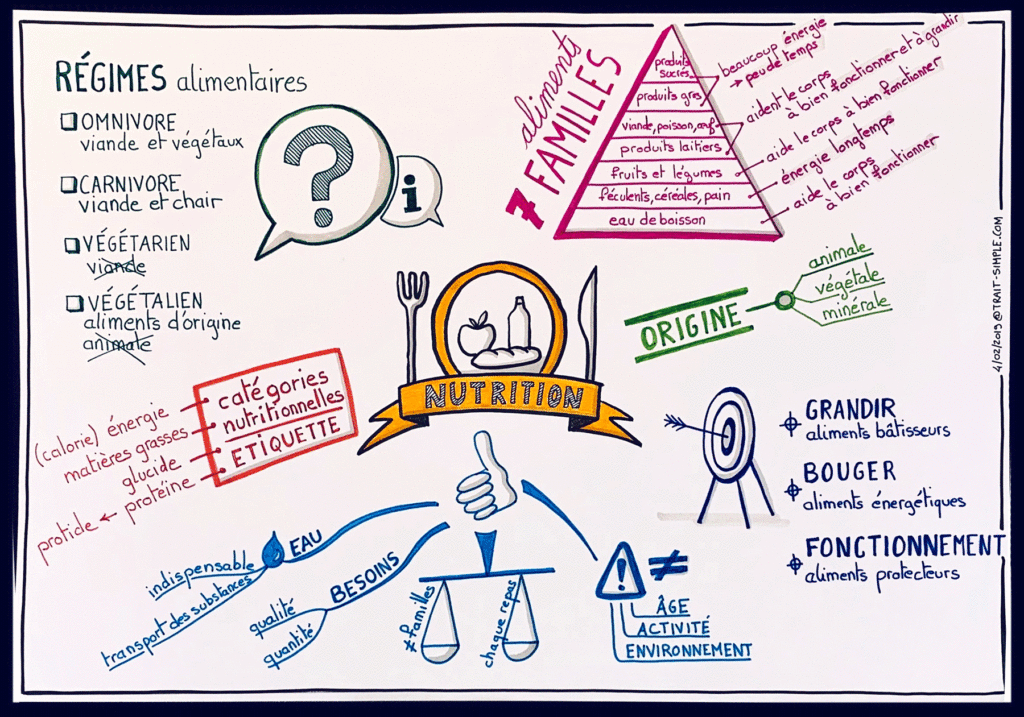 RÉGIMES alimentaires
OMNIVORE
viande et végétaux
CARNIVORE
viande et chair
VÉGÉTARIEN
viande
VÉGÉTALIEN
aliments d'origine
animale
?
i
7 FAMILLES
aliments
produits
sucrés
produits gras
viande, poisson, œuf
produits laitiers
fruits et légumes
féculents, céréales, pain
eau de boisson
beaucoup énergie
→ peu de temps
aident le corps
à bien fonctionner et à grandir
aide le corps à bien fonctionner
énergie longtemps
aide le corps
à bien fonctionner
ORIGINE
animale
végétale
minérale
NUTRITION
catégories
nutritionnelles
ETIQUETTE
(calorie) énergie
matières grasses
glucide
protide ← protéine
GRANDIR
aliments bâtisseurs
BOUGER
aliments énergétiques
FONCTIONNEMENT
aliments protecteurs
EAU
indispensable
transport des substances
BESOINS
qualité
quantité
≠ familles
chaque repas
! ≠
ÂGE
ACTIVITÉ
ENVIRONNEMENT
4/02/2019 @TRAIT-SIMPLE.COM